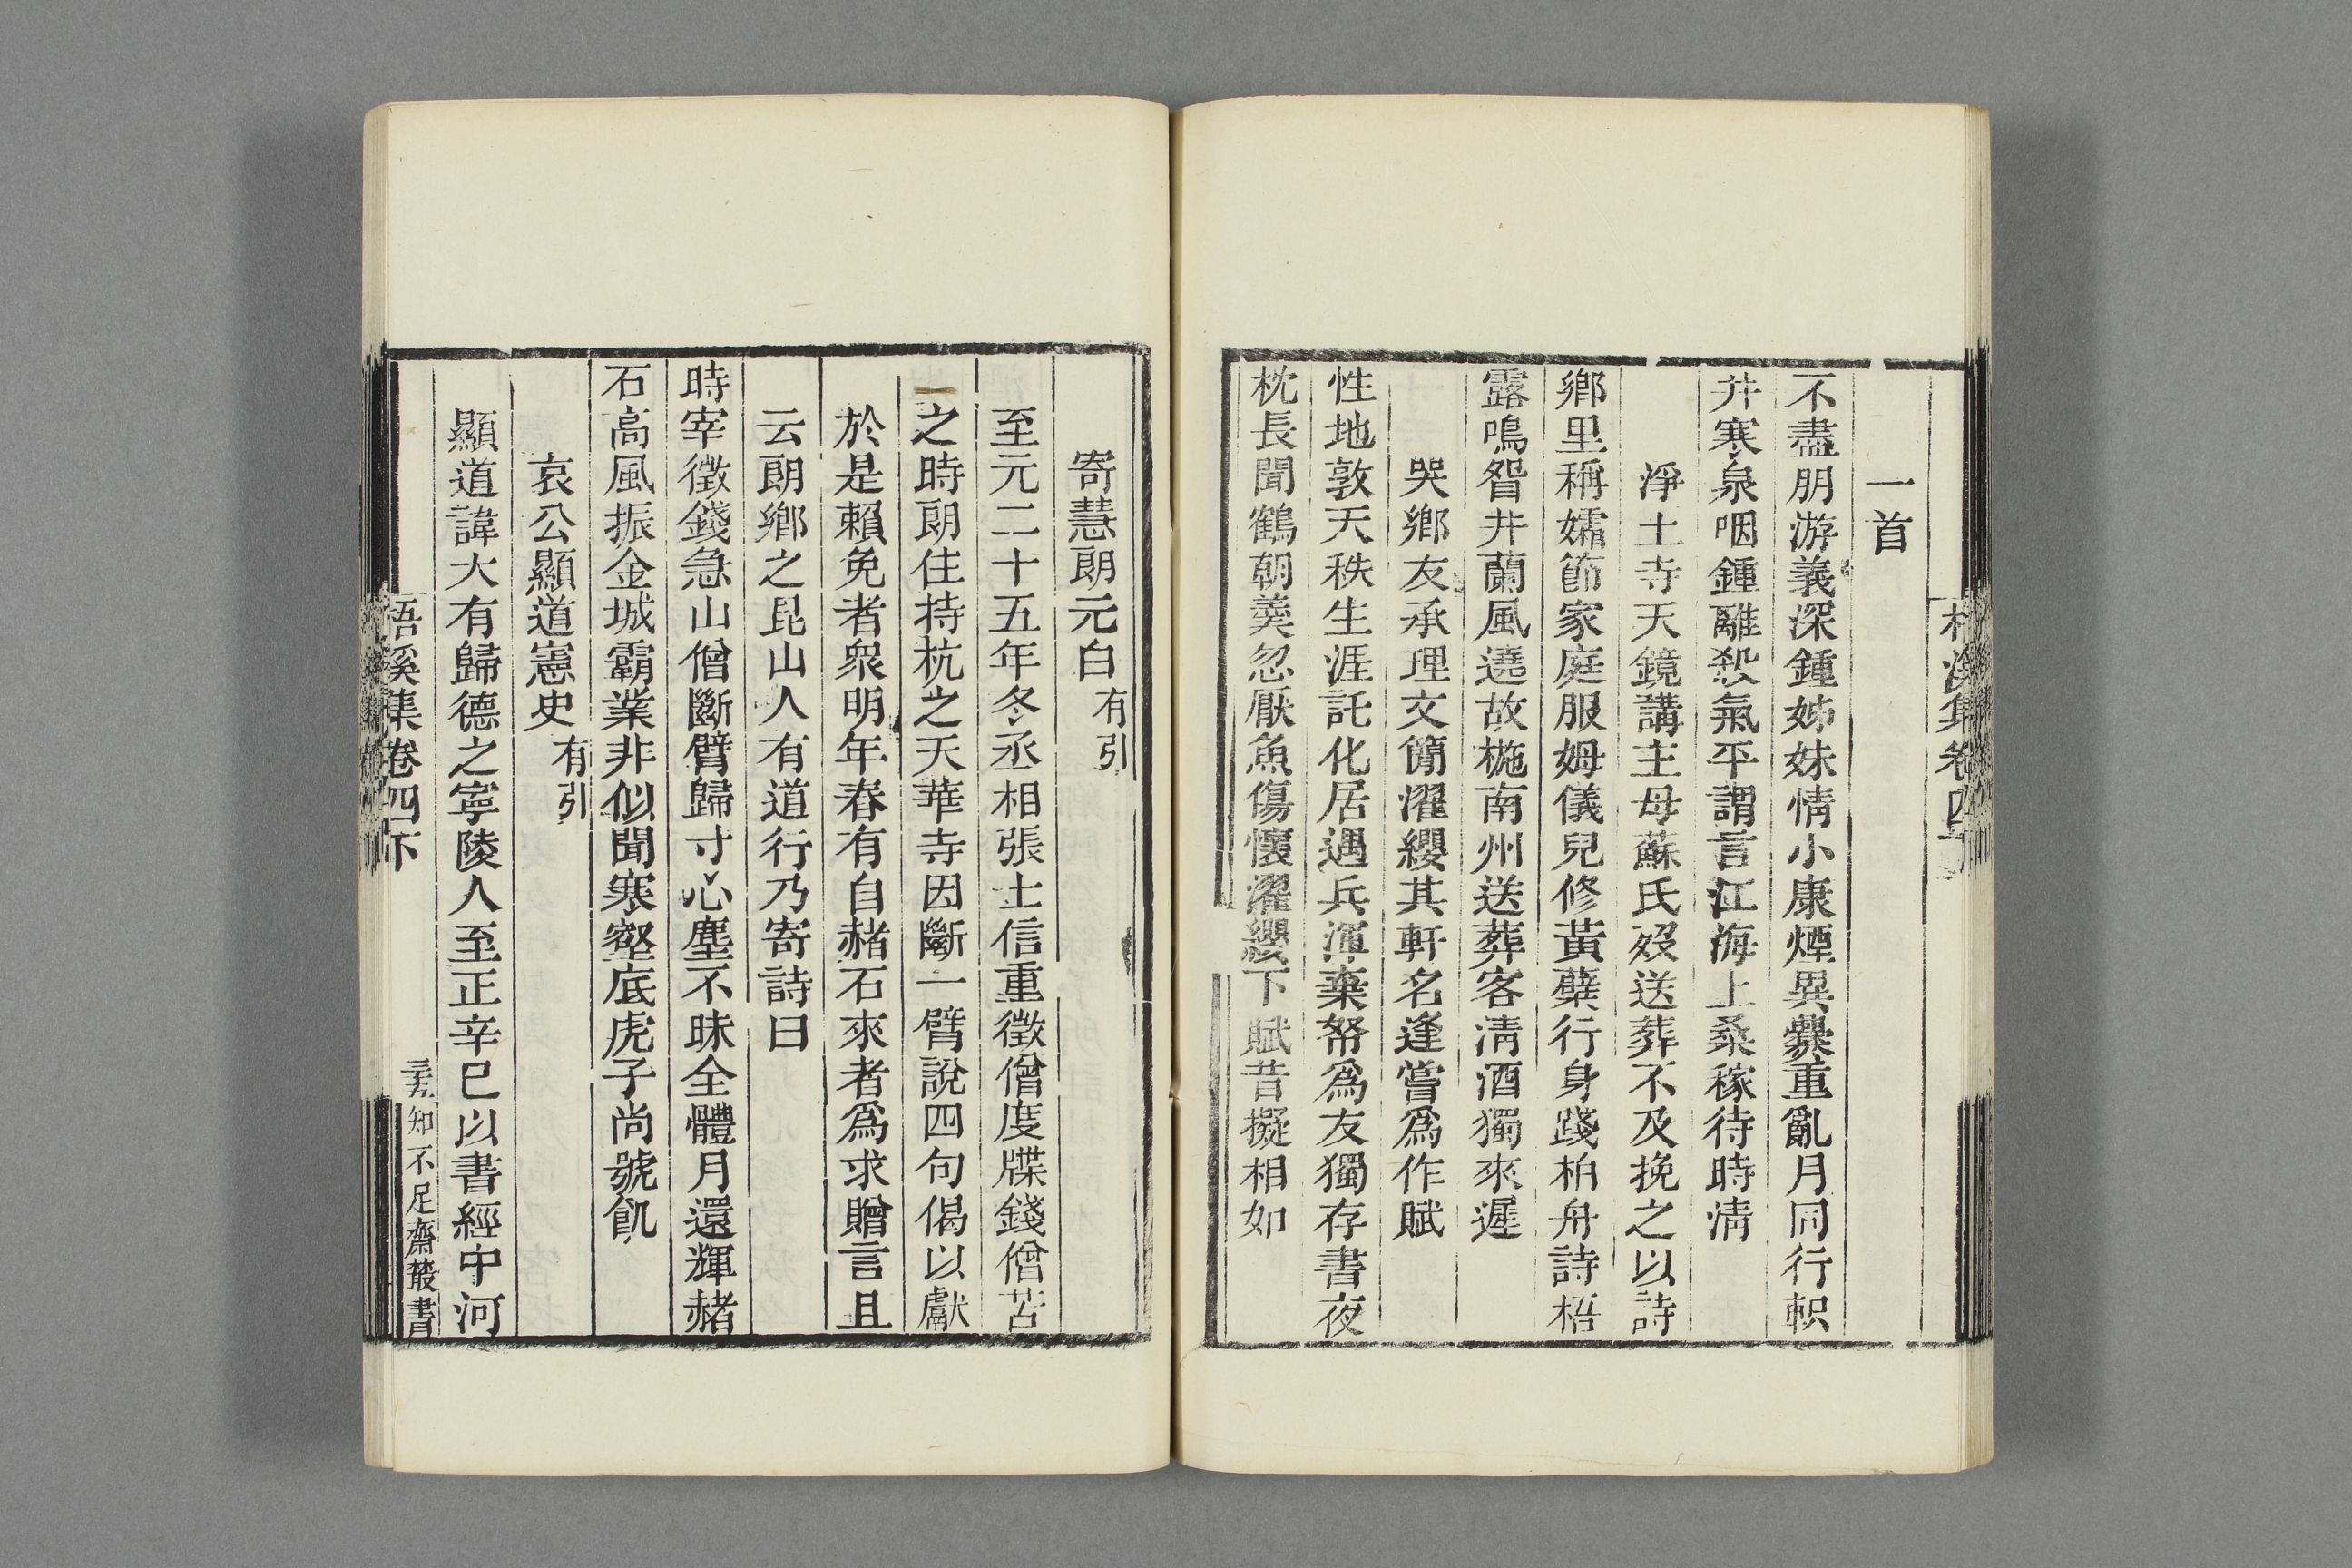 一首
不盡朋游義深鍾姊妹情小康煙異爨重亂月同行軹
井寒泉咽鍾離殺氣平謂言江海上桑稼待時淸
淨土寺天鏡講主母蘇氏歿送葬不及挽之以詩
鄕里稱孀節家庭服姆儀兒修黃蘗行身踐柏舟詩梧
露鳴眢井蘭風遶故椸南州送葬客淸酒獨來遲
哭鄕友承理文簡濯纓其軒名逢嘗爲作賦
性地敦天秩生涯託化居遇兵渾棄帑爲友獨存書夜
枕長聞鶴朝羹忽厭魚傷懷濯纓下賦昔擬相如
寄慧朗元白有引
至元二十五年冬丞相張士信重徵僧度牒錢僧苦
之時朗住持杭之天華寺因斷一臂說四句偈以獻
於是賴免者衆明年春有自赭石來者爲求贈言且
云朗鄕之昆山人有道行乃寄詩曰
時宰徵錢急山僧斷臂歸寸心塵不昧全體月還輝赭
石高風振金城霸業非似聞寒壑底虎子尚號飢
哀公顯道憲史有引
顯道諱大有歸德之寧陵人至正辛巳以書經中河
梧溪集卷四下
知不足齋叢書